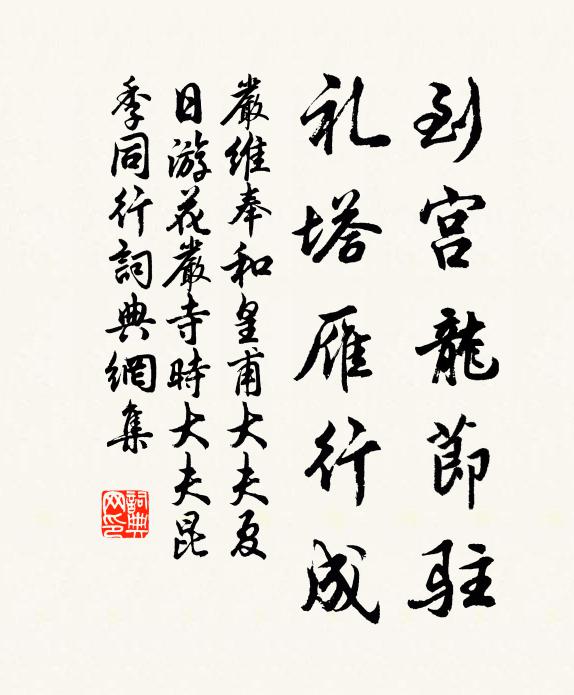 到宫龍節駐
礼塔雁行成
嚴維奉和皇甫大夫夏
日游花嚴寺時大夫昆
季同行詞典網集
詞典
网印